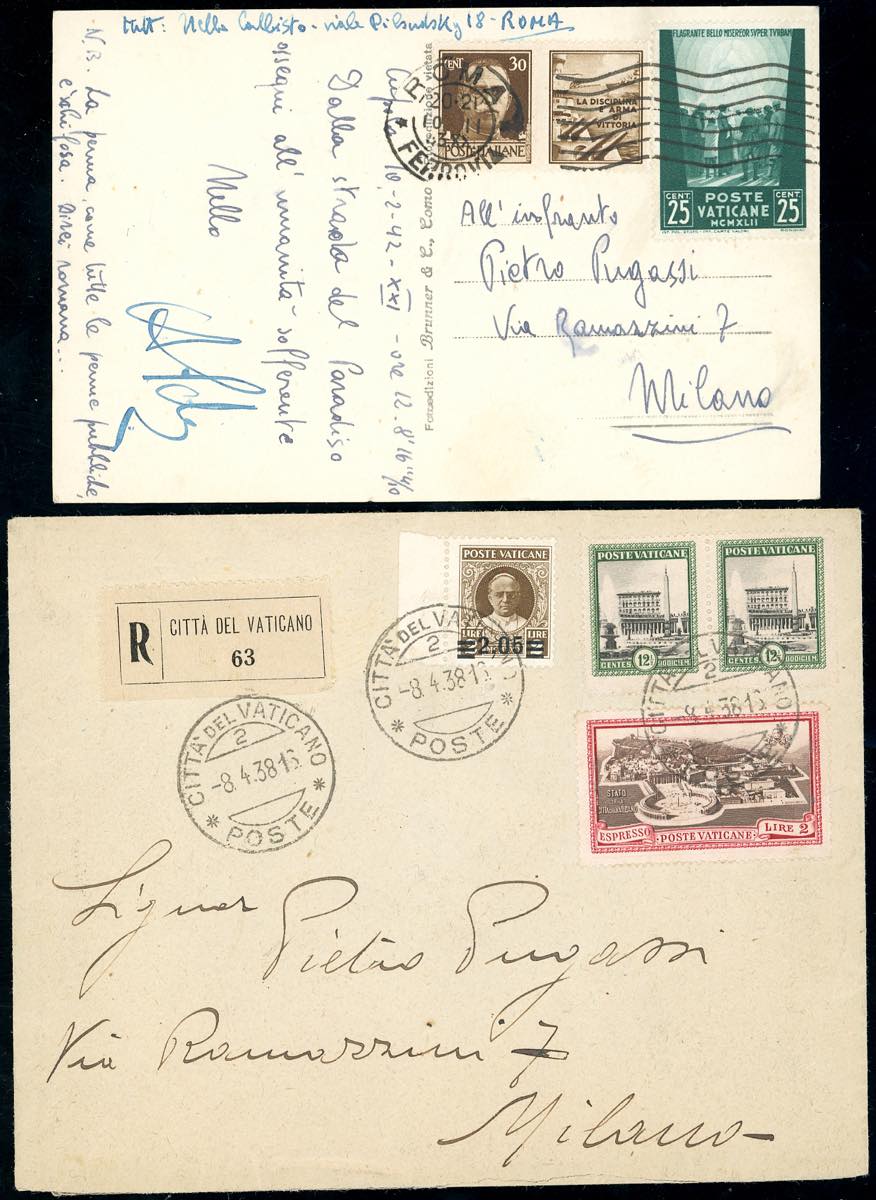 Mitt: Nello - viale Pilsudsky 18 - ROMA
N.B. La penna, come tutte le penne pubbliche,
è schifosa. Direi romana...
10-2-42-XXI - ore 12.8'16"
Dalla strada del Paradiso
ossequi all'umanità sofferente
Nello
Fotoedizioni Brunner & C., Como
vietata
CENT 30
POSTE ITALIANE
LA DISCIPLINA
E ARMA
DI
VITTORIA
ROMA
20-21
FERROVIA
FLAGRANTE BELLO MISEREOR SVPER TVRBAM
CENT. 25
POSTE
VATICANE
MCMXLII
CENT. 25
All'infranto
Pietro Pugassi
Via Ramazzini 7
Milano
R
CITTÀ DEL VATICANO
63
POSTE VATICANE
LIRE LIRE
2.05
POSTE VATICANE
CENTES. 12½ DODICI E M.
POSTE VATICANE
CENTES. 12½ DODICI E M.
STATO
DELLA
CITTÀ DEL VATICANO
ESPRESSO · POSTE VATICANE · LIRE 2
CITTÀ DEL VATICANO
2
-8.4.38.16
POSTE
CITTÀ DEL VATICANO
2
-8.4.38.16
POSTE
CITTÀ DEL VATICANO
2
-8.4.38.16
Signor
Pietro Pugassi
Via Ramazzini 7
Milano